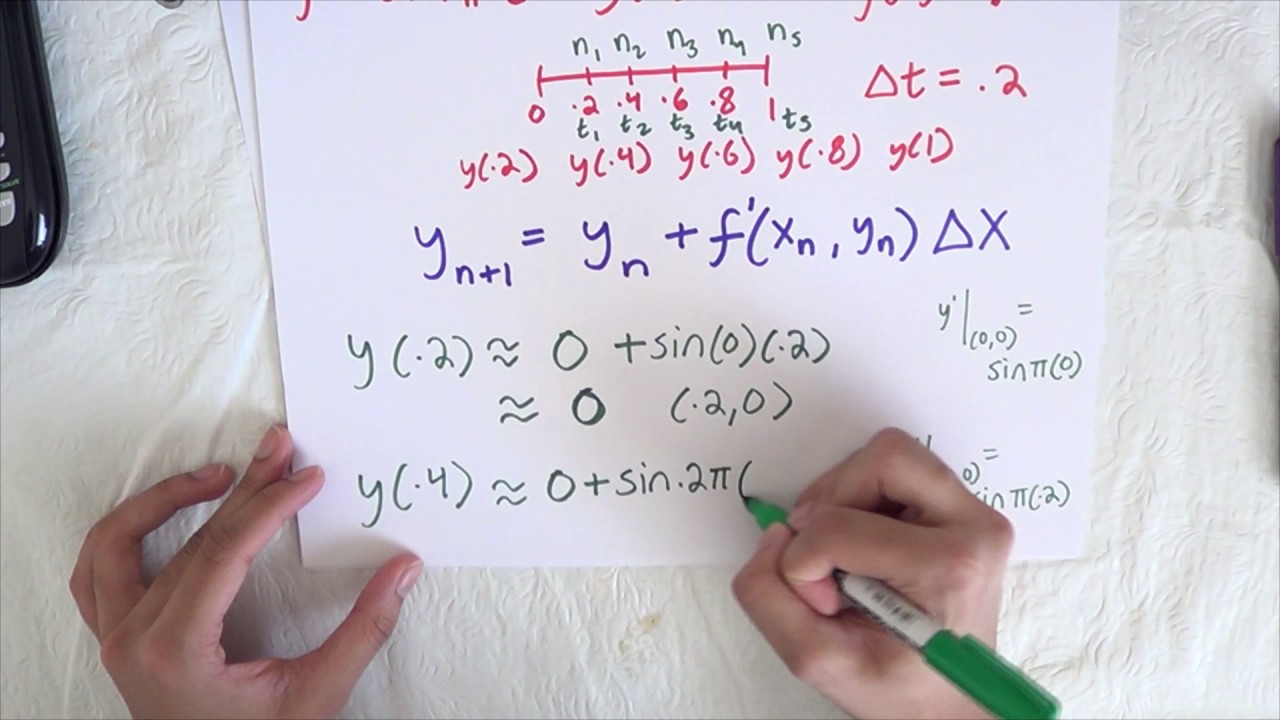 n₁ n₂ n₃ n₄ n₅
0 .2 .4 .6 .8 1
t₁ t₂ t₃ t₄ t₅
Δt = .2
y(.2) y(.4) y(.6) y(.8) y(1)
yₙ₊₁ = yₙ + f'(xₙ, yₙ) ΔX
y'|(0,0) =
sinπ(0)
y(.2) ≈ 0 + sin(0)(.2)
≈ 0 (.2,0)
0) =
sin π(.2)
y(.4) ≈ 0 + sin.2π(